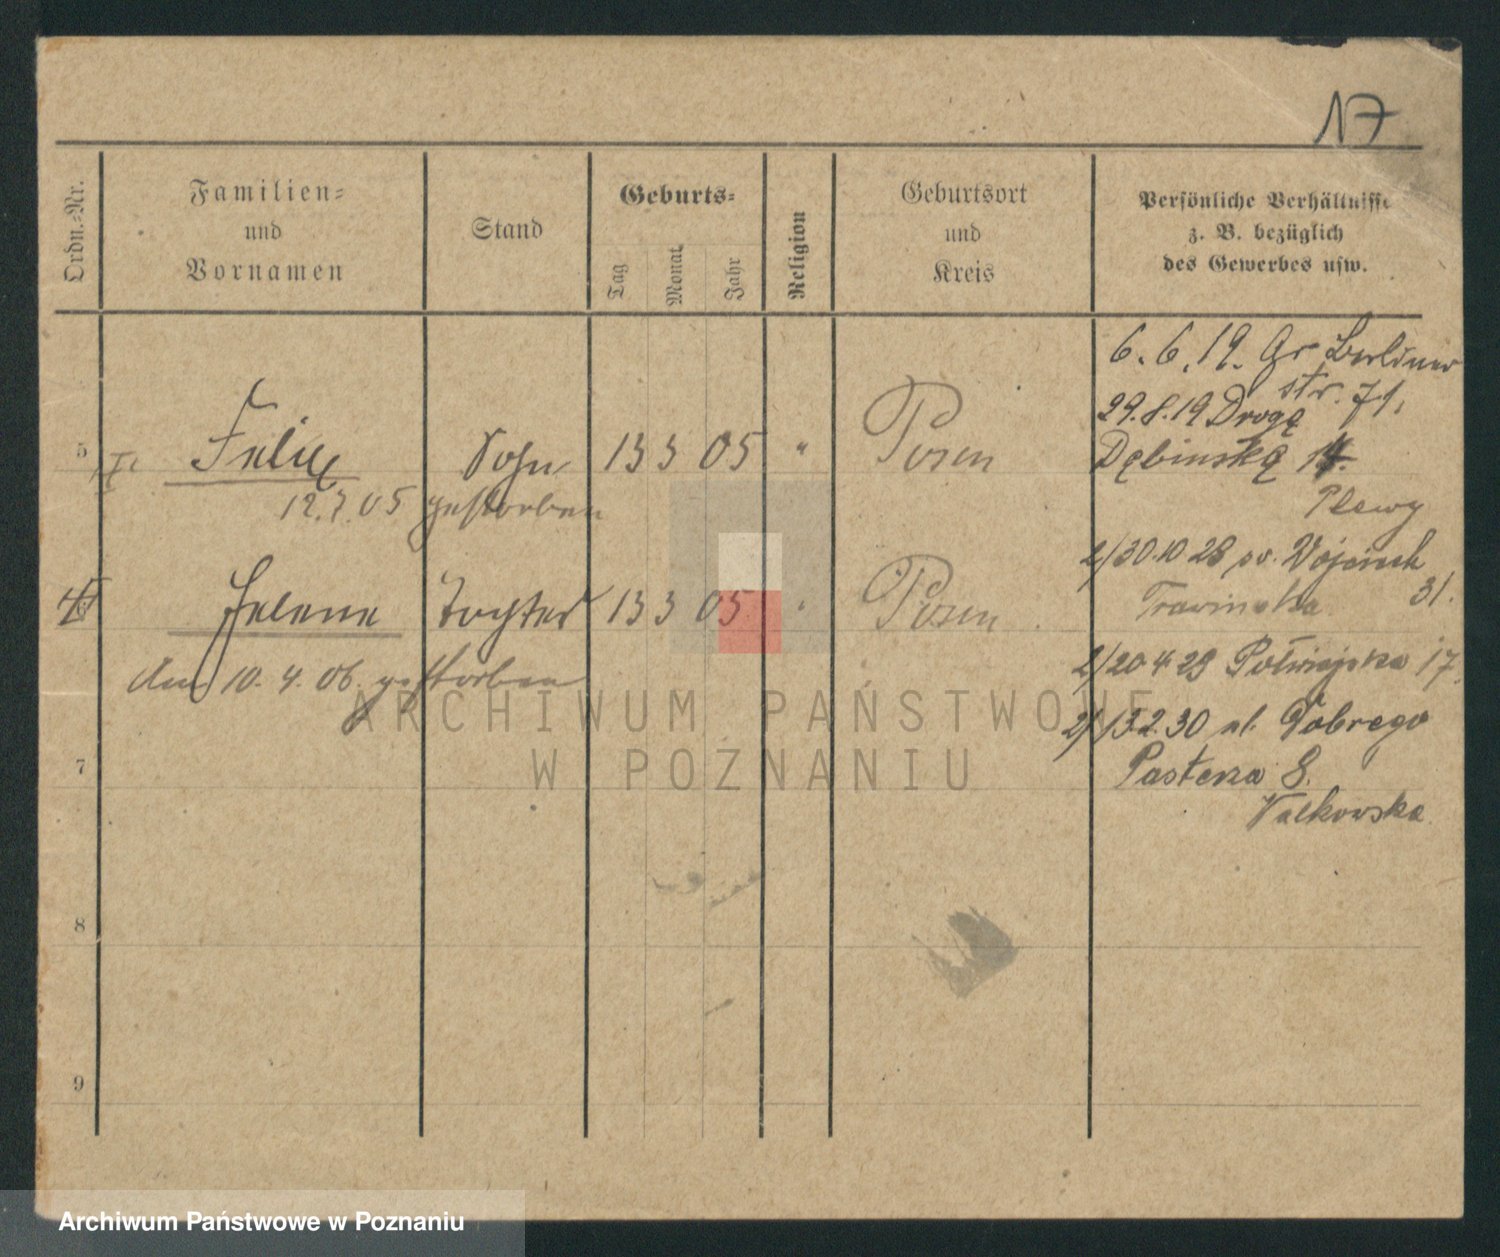 17
Ordn.-Nr.
Familien-
und
Vornamen
Stand
Geburts-
Tag
Monat
Jahr
Religion
Geburtsort
und
Kreis
Persönliche Verhältnisse
z. B. bezüglich
des Gewerbes usw.
6. 6. 19. Gr Berliner
str. 71,
29. 8. 19 Drogę
Dębinską 14.
5 Felix Sohn 13 3 05 " Posen
12. 7. 05 gestorben
Plewy
2/30.10 28 Wojciech 31.
6 Helene Tochter 13 3 05 " Posen
den 10. 4. 06. gestorben
2/20 4 29 Półwiejska 17.
2/13.2.30 pl. Dobrego
Pasterza 8.
Valkowska
7
8
9
ARCHIWUM PAŃSTWOWE
W POZNANIU
Archiwum Państwowe w Poznaniu